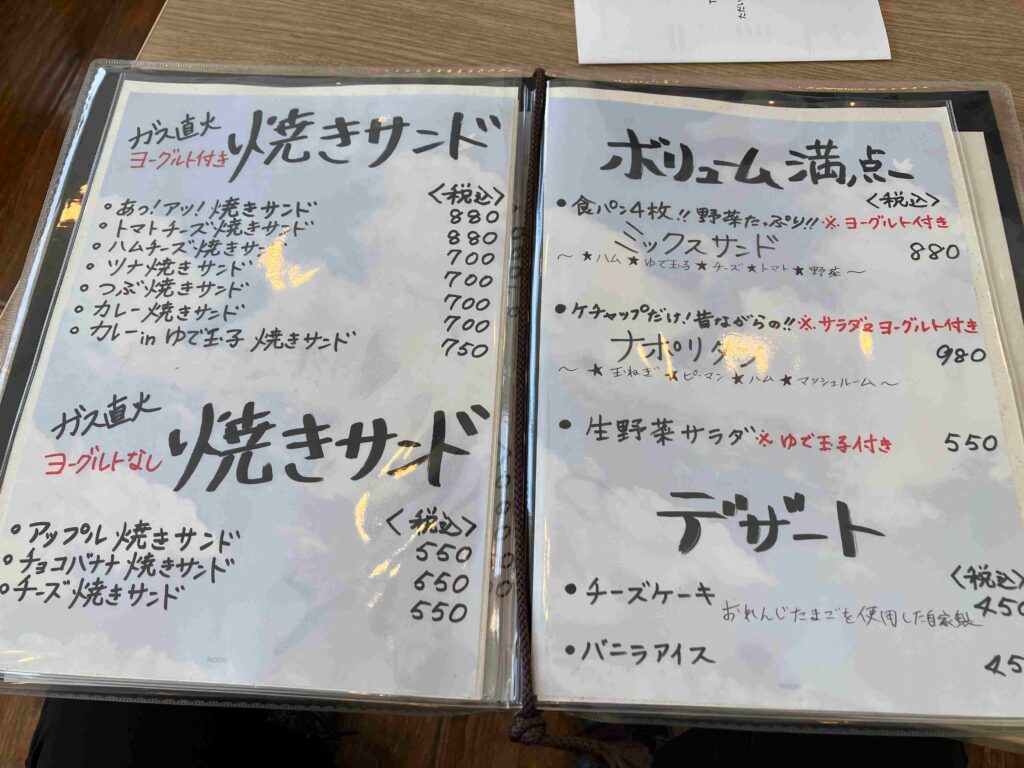 ガス直火
ヨーグルト付き
焼きサンド
<税込>
あっ!アッ!焼きサンド 880
トマトチーズ焼きサンド 880
ハムチーズ焼きサンド 700
ツナ焼きサンド 700
つぶ焼きサンド 700
カレー焼きサンド 700
カレーinゆで玉子 焼きサンド 750
ガス直火
ヨーグルトなし
焼きサンド
<税込>
アップル焼きサンド 550
チョコバナナ焼きサンド 550
チーズ焼きサンド 550
ボリューム満点
<税込>
・食パン4枚!!野菜たっぷり!!※ヨーグルト付き
ミックスサンド 880
〜★ハム★ゆで玉子★チーズ★トマト★野菜〜
・ケチャップだけ!昔ながらの!!※サラダとヨーグルト付き
ナポリタン 980
〜★玉ねぎ★ピーマン★ハム★マッシュルーム〜
・生野菜サラダ※ゆで玉子付き 550
デザート
<税込>
・チーズケーキ 450
おれんじたまごを使用した自家製
・バニラアイス 45